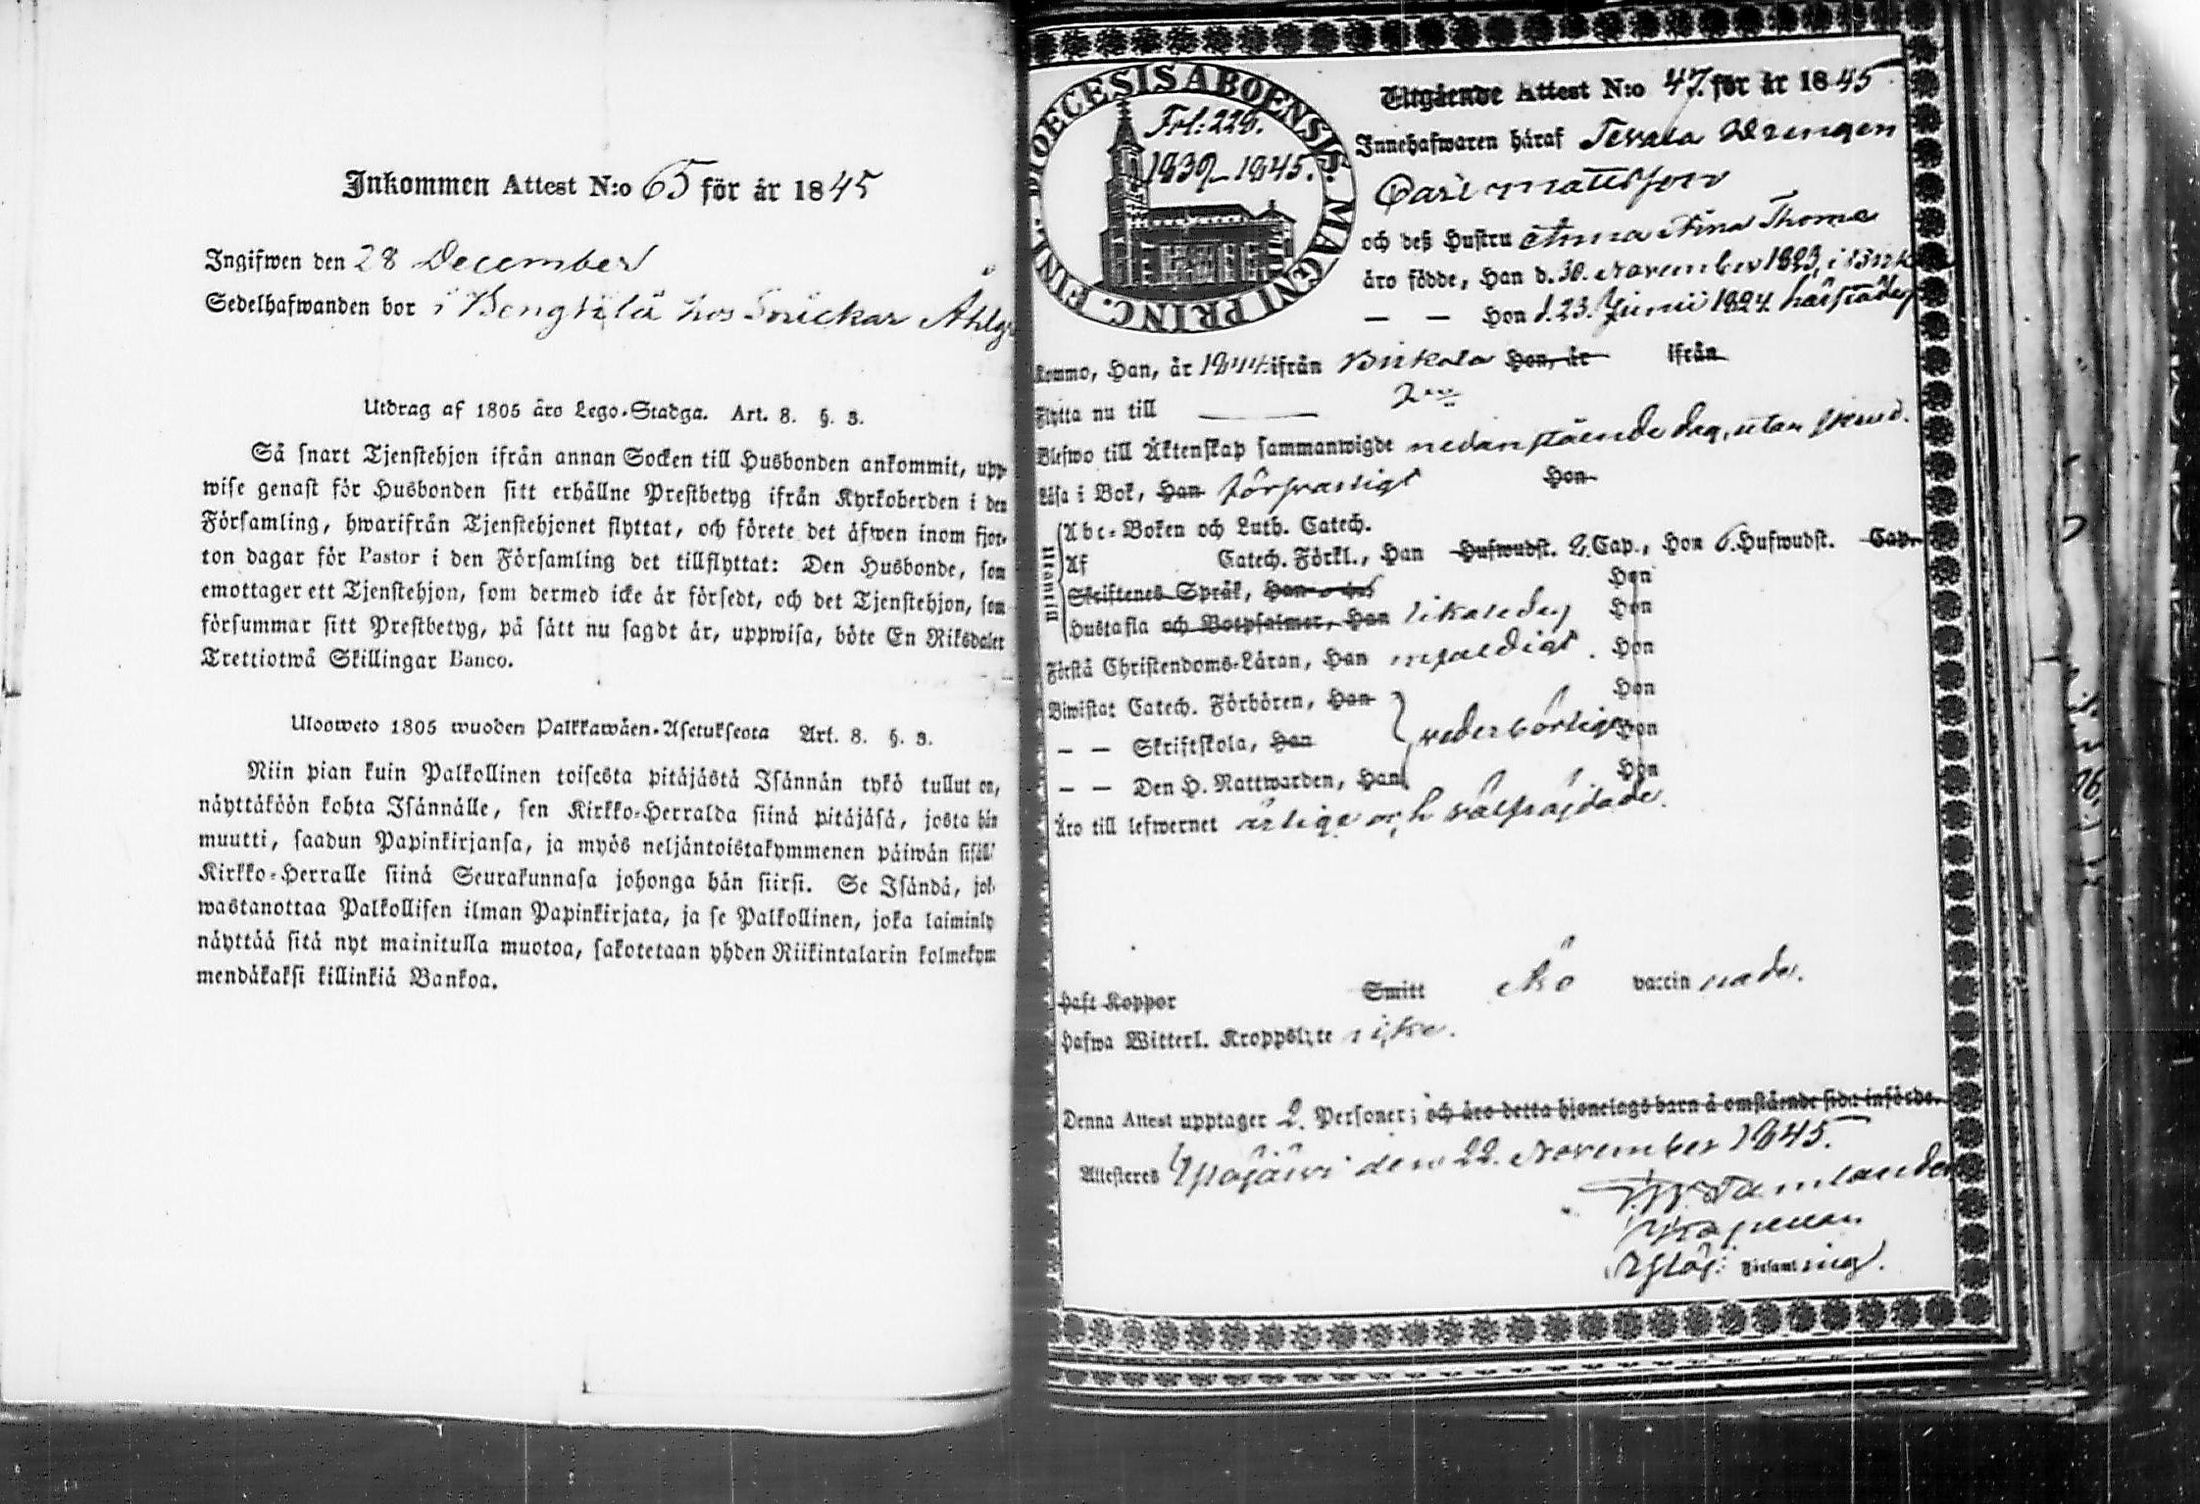 Inkommen Attest N:o 65 för år 1845
Ingifwen den 28 December
Sedelhafwanden bor i Bengtilä hos Snickar Åhlg
Utdrag af 1805 års Lego-Stadga. Art. 8. §. 3.
Så snart Tjenstehjon ifrån annan Socken till Husbonden ankommit, upp
wise genast för Husbonden sitt erhållne Prestbetyg ifrån Kyrkoherden i den
Församling, hwarifrån Tjenstehjonet flyttat, och förete det äfwen inom fjor-
ton dagar för Pastor i den Församling det tillflyttat: Den Husbonde, som
emottager ett Tjenstehjon, som dermed icke är försedt, och det Tjenstehjon, som
försummar sitt Prestbetyg, på sätt nu sagdt är, uppwisa, böte En Riksdaler
Trettiotwå Skillingar Banco.
Ulosweto 1805 wuoden Palkkawäen-Asetuksesta Art. 8. §. 3.
Niin pian kuin Palkollinen toisesta pitäjästä Isännän tykö tullut on,
näyttäköön kohta Isännälle, sen Kirkko-Herralda siinä pitäjäsä, josta hän
muutti, saadun Papinkirjansa, ja myös neljäntoistakymmenen päiwän sisäll'
Kirkko-Herralle siinä Seurakunnasa johonga hän siirsi. Se Isändä, jok
wastanottaa Palkollisen ilman Papinkirjata, ja se Palkollinen, joka laiminly
näyttää sitä nyt mainitulla muotoa, sakotetaan yhden Riikintalarin kolmekym
mendäkaksi killinkiä Bankoa.
DIOECESIS ABOENSIS. MAGNI PRINC. FINL.
Fol: 228.
1839-1845.
Utgående Attest N:o 47. för år 1845
Innehafwaren häraf Drengen
Carl Mattsson
och deß Hustru Anna Stina Thoma
äro födde, Han d. 30. November 1823, i Birk
— — Hon d. 23. Junii 1824 härstädes
Kommo, Han, år 1844 ifrån Birkala Hon, år ifrån
Flytta nu till
Blefwo till Äktenskap sammanwigde nedanstående dag, utan
Läsa i Bok, Han försvarligt Hon
Utantill
Abc-Boken och Luth. Catech.
Af Catech. Förkl., Han Hufwudst. 2. Cap., Hon 6. Hufwudst. Cap.
Skriftenes Språk, Han Hon
Hustafla och Botpsalmer, Han likaledes Hon
Förstå Christendoms-Läran, Han Hon
Biwistat Catech. Förhören, Han Hon
— — Skriftskola, Han vederbörligen Hon
— — Den H. Nattwarden, Han Hon
Äro till lefwernet ärlige och välfräjdade.
Haft Koppor Smitt Äro vaccinnade.
Hafwa Witterl. Kroppslyte icke.
Denna Attest upptager 2. Personer; och äro detta hjonelags barn å omstående sida införde.
Attesteres Ylöjärvi den 22. November 1845.
Ylöj: Församling.